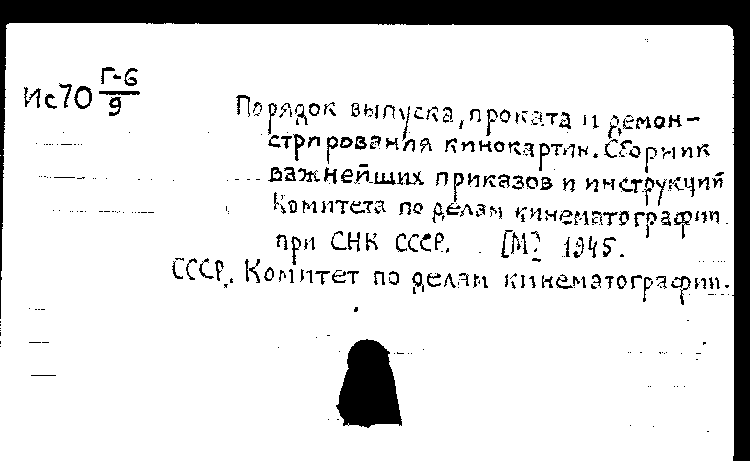 Ис70 Г-6/9
Порядок выпуска, проката и демон-
стрирования кинокартин. Сборник
важнейших приказов и инструкций
Комитета по делам кинематографии
при СНК СССР. [М] 1945.
СССР. Комитет по делам кинематографии.